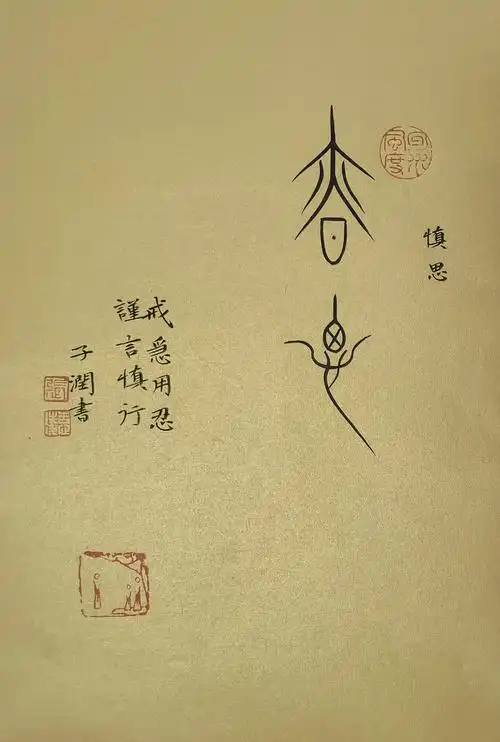 慎思
昚思
戒急用忍
謹言慎行
子潤書